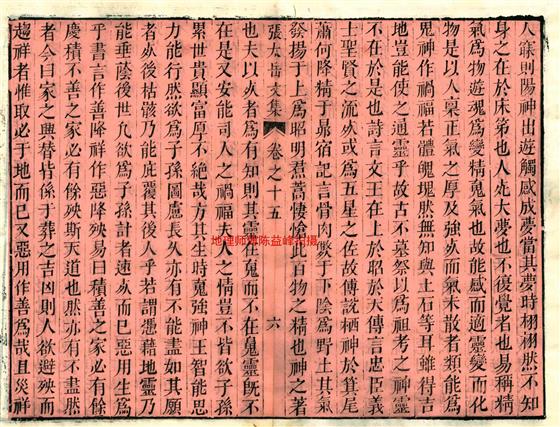 人寐則陽神出遊觸感成夢當其夢時栩栩然不知
身之在於床笫也人死大夢也不復覺者也易稱精
氣爲物遊魂爲變精䰟氣也故能感而通靈變而化
物是以人稟正氣之厚及强死而氣未散者類能爲
鬼神作禍福若體魄塊然無知與土石等耳雖得吉
地豈能使之通靈乎故古不墓祭以爲祖考之神靈
不在於是也詩言文王在上於昭於天傳言忠臣義
士聖賢之流死或爲五星之佐故傅說栖神於箕尾
蕭何降精于昴宿記言骨肉斃于下陰爲野土其氣
發揚于上爲昭明焄蒿悽愴此百物之精也神之著
張太岳文集 卷之十五 六
也夫以死者爲有知則其靈在䰟而不在魄靈旣不
在是又安能司人之禍福夫人之情豈不皆欲子孫
累世貴顯富厚不絕哉方其生時魂强神王智能思
力能行然欲爲子孫圖慮長久亦有不能盡如其願
者死後枯骸乃能庇覆其後人乎若謂憑藉地靈乃
能垂蔭後世凢欲爲子孫計者速死而已惡用生爲
乎書言作善降祥作惡降殃易曰積善之家必有餘
慶積不善之家必有餘殃斯天道也然亦有不盡然
者今曰家之興替皆係于葬之吉凶則人欲避殃而
趨祥者惟取必于地而已又惡用作善爲哉且災祥
地理师陈益峰